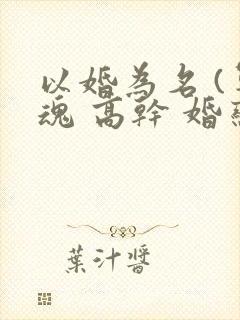 以婚為名(
魂 高幹 婚
葉汁醬